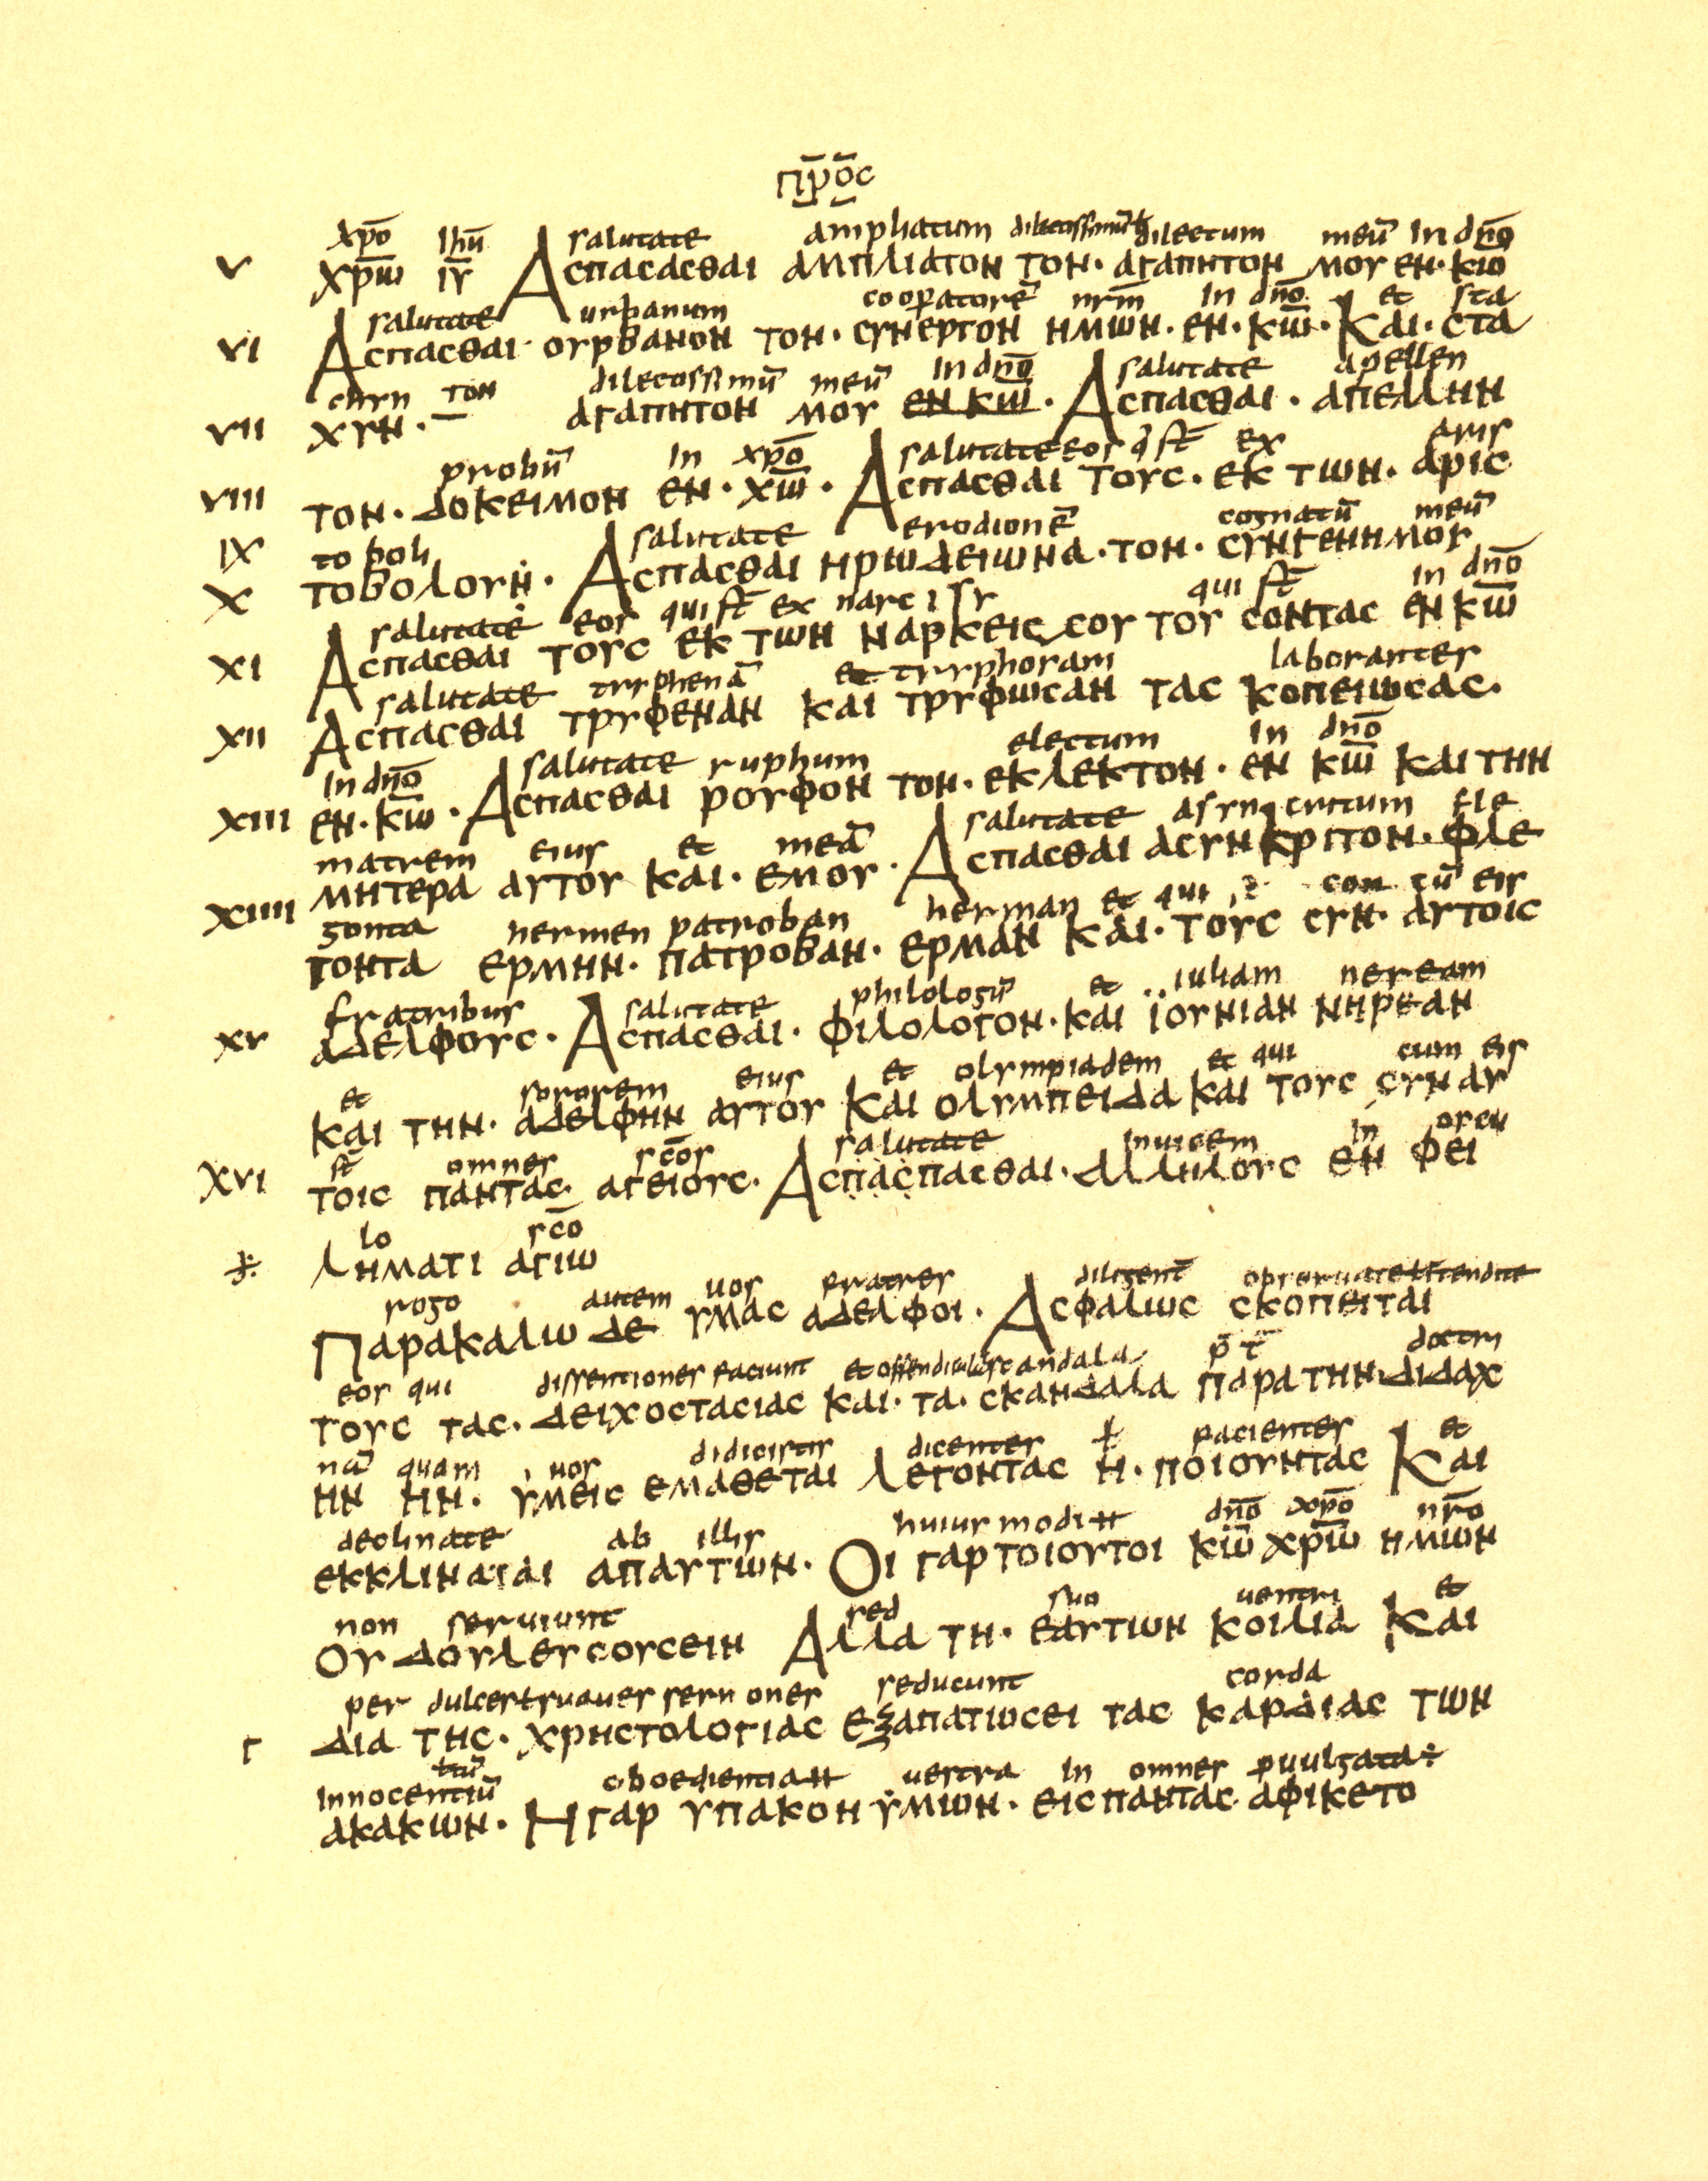 προς
χρο ihu salutate ampliatum dilectissimu ł dilectum meu in dno
V χρω ιυ Ασπασασθαι αμπλιατον τον· αγαπητον μου εν· κω
salutate urbanum cooperatore nrm in dno et sta
VI Ασπασθαι· ουρβανον τον· συνεργον ημων· εν· κω· Και· στα
chyn τον dilectissimu meu in dno salutate apellen
VII χυν· αγαπητον μου εν κω· Ασπασθαι· απελλην
probu in χρο salutate eos q st ex aris
VIII τον· δοκειμον εν· χω· Ασπασθαι τους· εκ των· αρις
IX to boli salutate erodione cognatu meu
X τοβολουν· Ασπασθαι ηρωδειωνα· τον· συνγενην μου
salutate eos qui st ex narcissi qui st in dno
XI Ασπασθαι τους εκ των ναρκεισ σου του σοντας εν κω
salutate tryphena et tryphosam laborantes
XII Ασπασθαι τρυφεναν Και τρυφωσαν τας κοπειωσας·
in dno salutate ruphum electum in dno
XIII εν· κω· Ασπασθαι ρουφον τον· εκλεκτον· εν κω Και την
matrem eius et mea salutate asyncritum fle
μητερα αυτου Και· εμου· Ασπασθαι ασυνκριτον· φλε
XIIII gonta hermen patroban herman et qui con cu eis
γοντα ερμην· πατροβαν· ερμαν Και· τους συν· αυτοις
fratribus salutate philologu et iuliam neream
XV αδελφους· Ασπασθαι· φιλολογον· Και ϊουνιαν νηρεαν
et sororem eius et olympiadem et qui cum eis
Και την· αδελφην αυτου Και ολυμπειδα Και τους συν αυ
st omnes scos salutate inuicem in oscu
XVI τοις παντας· αγειους· Ασπασπασθαι· αλληλους εν φει
lo sco
ληματι αγιω
rogo autem uos fratres diligent obseruate ł ttendite
Παρακαλω δε υμας αδελφοι· Ασφαλως σκοπειται
eos qui dissentiones faciunt et offendicula scandala doctri
τους τας· δειχοστασιας Και· τα· σκανδαλα παρα την· διδαχ
na quam uos didicistis dicentes ł facientes et
ην ην· υμεις εμαθεται λεγοντας η· ποιουντας Και
declinate ab illis
εκκλιναται απαυτων· Οι γαρ τοιουτοι κω χρω ημων
huiusmodi dno χρο nro
non seruiunt sed suo uentri et
Ου δουλευσουσειν Αλλα τη· εαυτων κοιλια Και
per dulces et suaues sermones seducunt corda
Γ δια της· χρηστολογιας εξαπατωσει τας καρδιας των
innocentiu oboedientia uestra in omnes puulgata÷
ακακων· Η γαρ υπακον υμων· εις παντας· αφικετο